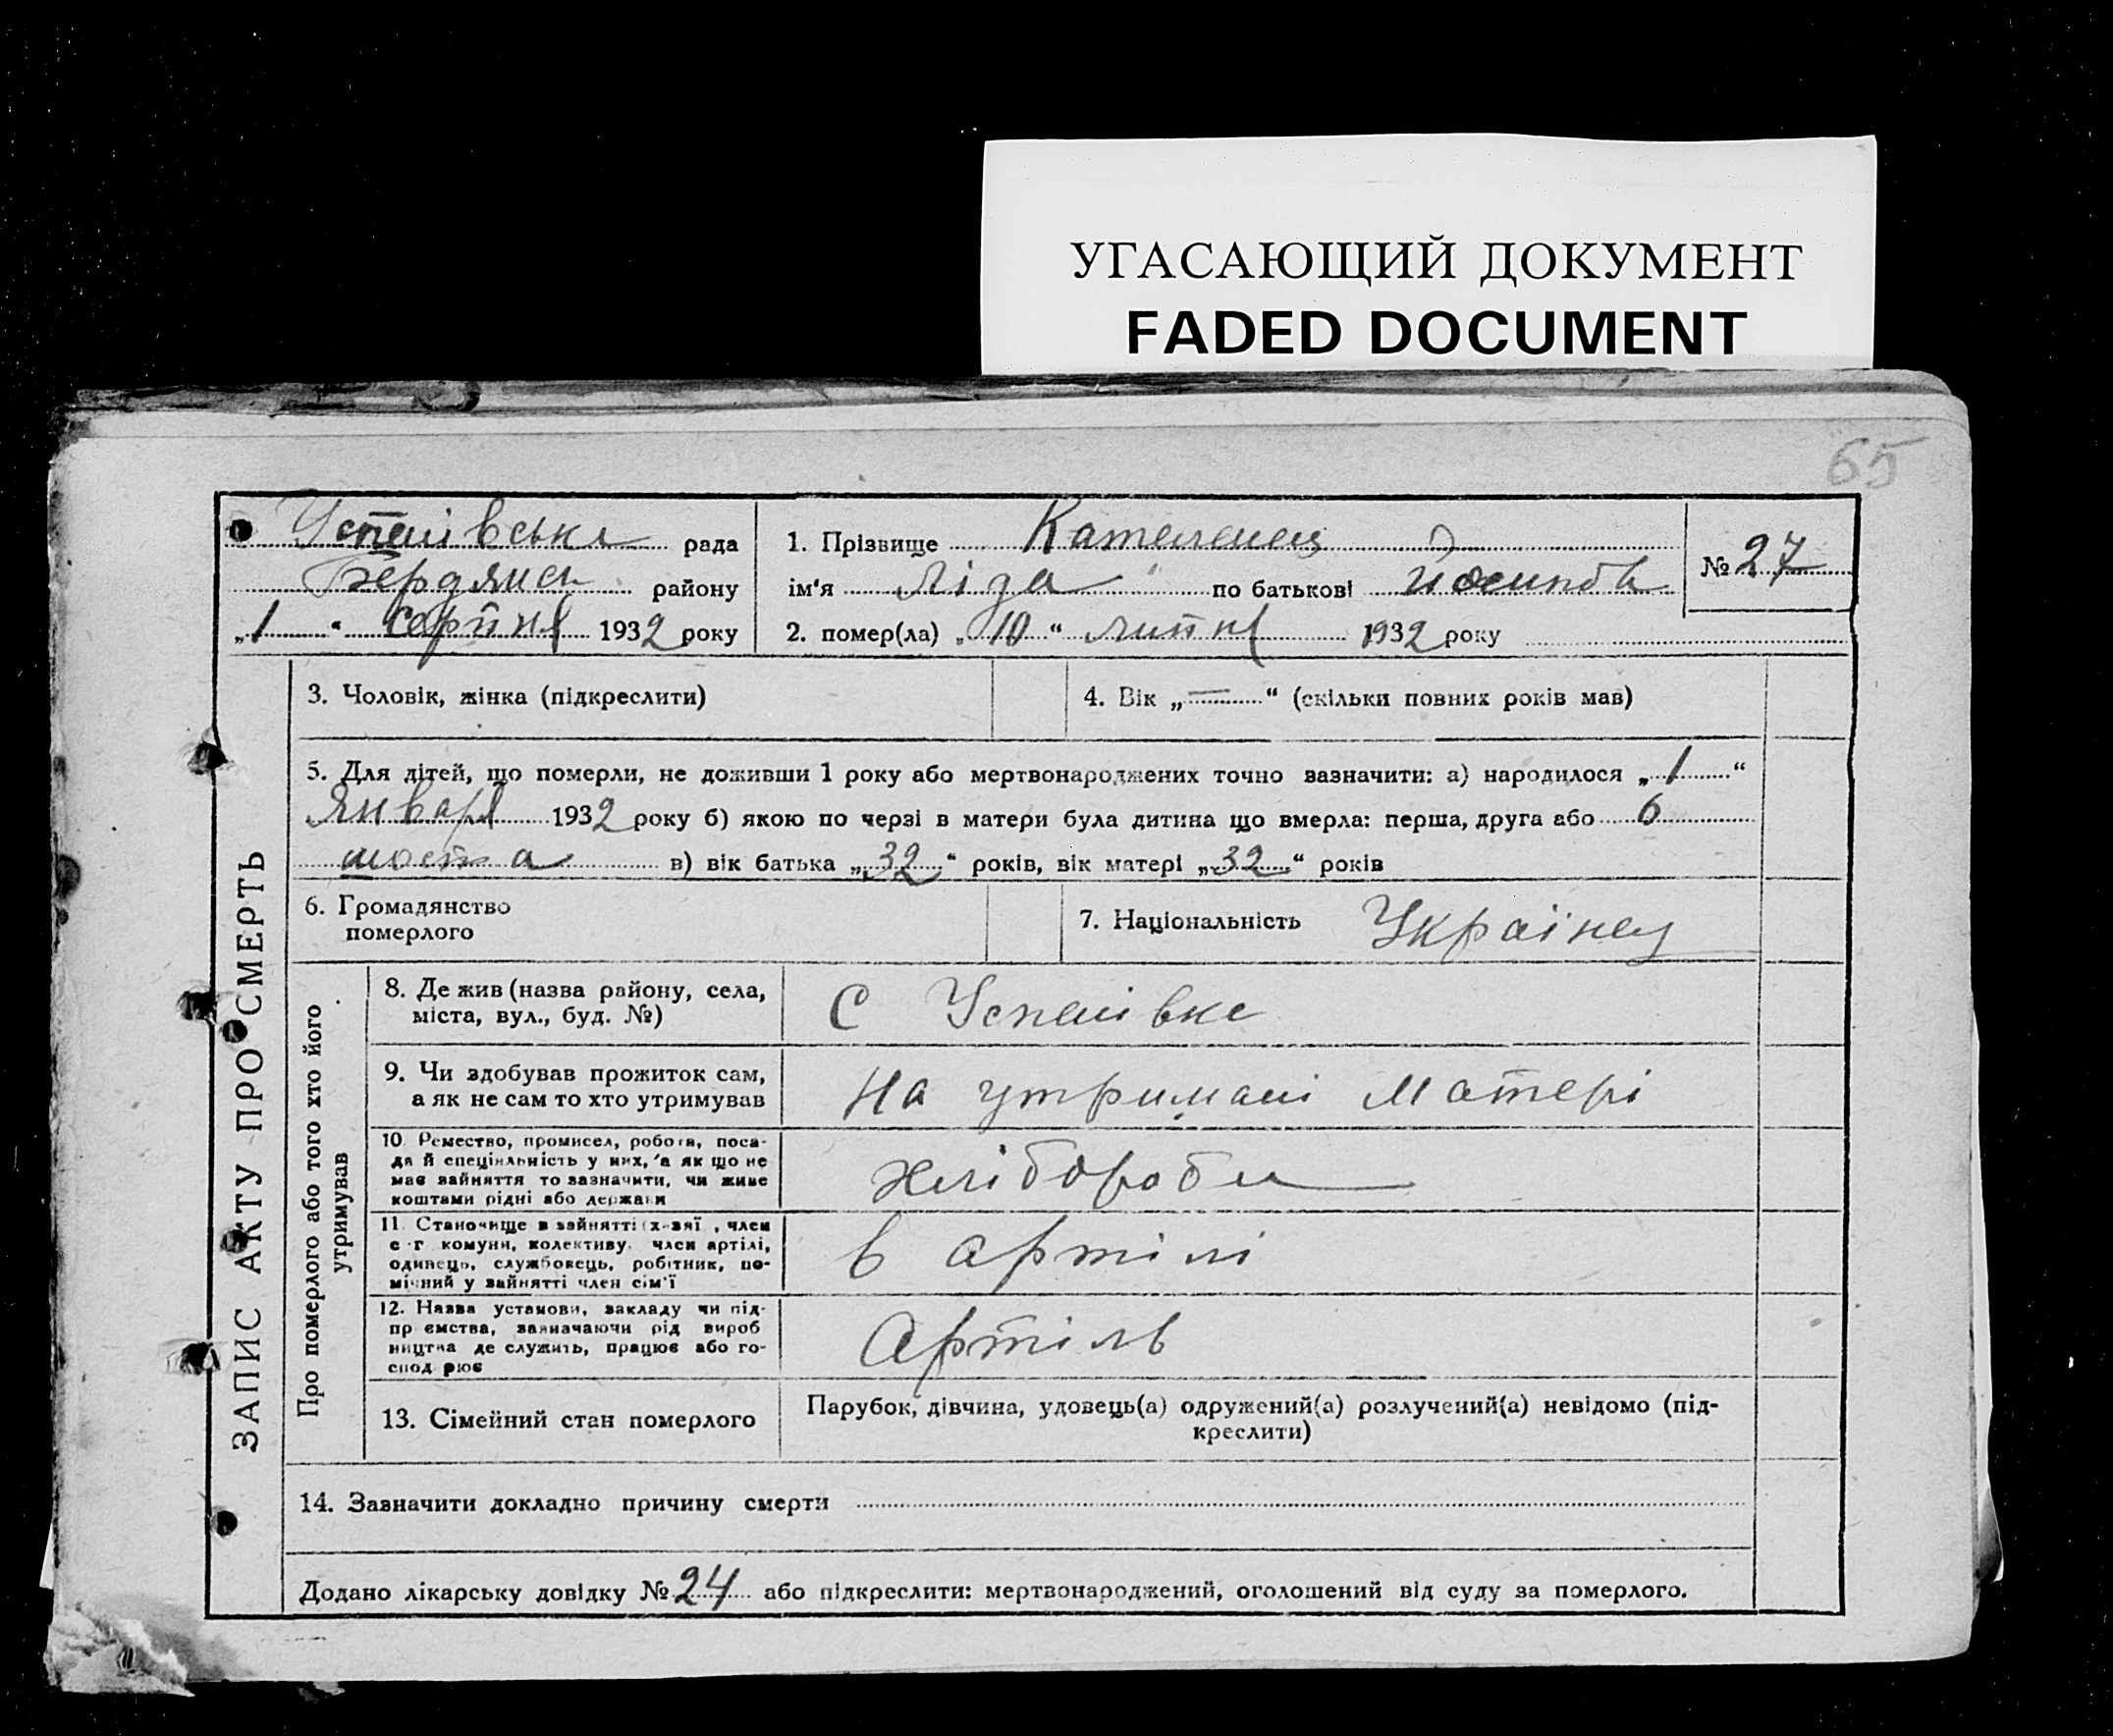 УГАСАЮЩИЙ ДОКУМЕНТ
FADED DOCUMENT
65
Успенівська рада
Бердянсь району
„1“ Серпня 1932 року
1. Прізвище
ім'я Ліза по батькові Йосипов
2. помер(ла) „10“ липня 1932 року
№ 27
ЗАПИС АКТУ ПРО СМЕРТЬ
3. Чоловік, жінка (підкреслити)
4. Вік „—“ (скільки повних років мав)
5. Для дітей, що померли, не доживши 1 року або мертвонароджених точно зазначити: а) народилося „1“
Января 1932 року б) якою по черзі в матери була дитина що вмерла: перша, друга або 6
шоста в) вік батька „32“ років, вік матері „32“ років
6. Громадянство
померлого
7. Національність Українец
Про померлого або того хто його
утримував
8. Де жив (назва району, села,
міста, вул., буд. №)
С Успенівка
9. Чи здобував прожиток сам,
а як не сам то хто утримував
На утримані Матері
10. Ремество, промисел, робота, поса-
да й спеціяльність у них, а як що не
має зайняття то зазначити, чи живе
коштами рідні або держави
хліборобы
11. Становище в зайнятті (х-зяї , член
с-г комуни, колективу, член артілі,
одинець, службовець, робітник, по-
мічний у зайнятті член сім'ї
в артілі
12. Назва установи, закладу чи під-
пр ємства, зазначаючи рід вироб
ництва де служить, працює або го-
спод рює
Артіль
13. Сімейний стан померлого
Парубок, дівчина, удовець(а) одружений(а) розлучений(а) невідомо (під-
креслити)
14. Зазначити докладно причину смерти
Додано лікарську довідку № 24 або підкреслити: мертвонароджений, оголошений від суду за померлого.